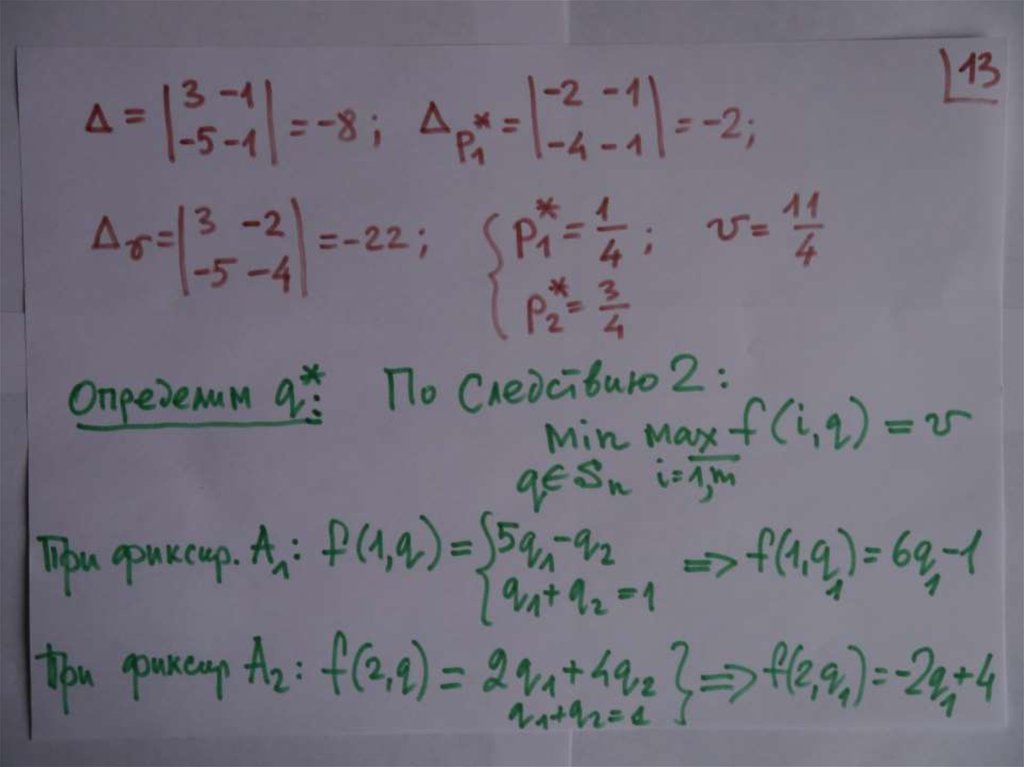 13
Δ = |3 -1; -5 -1| = -8; Δp₁* = |-2 -1; -4 -1| = -2;
Δγ = |3 -2; -5 -4| = -22; { p₁* = 1/4; p₂* = 3/4 v = 11/4
Определим q*: По Следствию 2:
min max f(i,q) = v
q∈Sₙ i=1,m
При фиксир. A₁: f(1,q) = { 5q₁-q₂ ⇒ f(1,q₁) = 6q₁-1
q₁+q₂=1
При фиксир A₂: f(2,q) = 2q₁+4q₂ } ⇒ f(2,q₁) = -2q₁+4
q₁+q₂=1